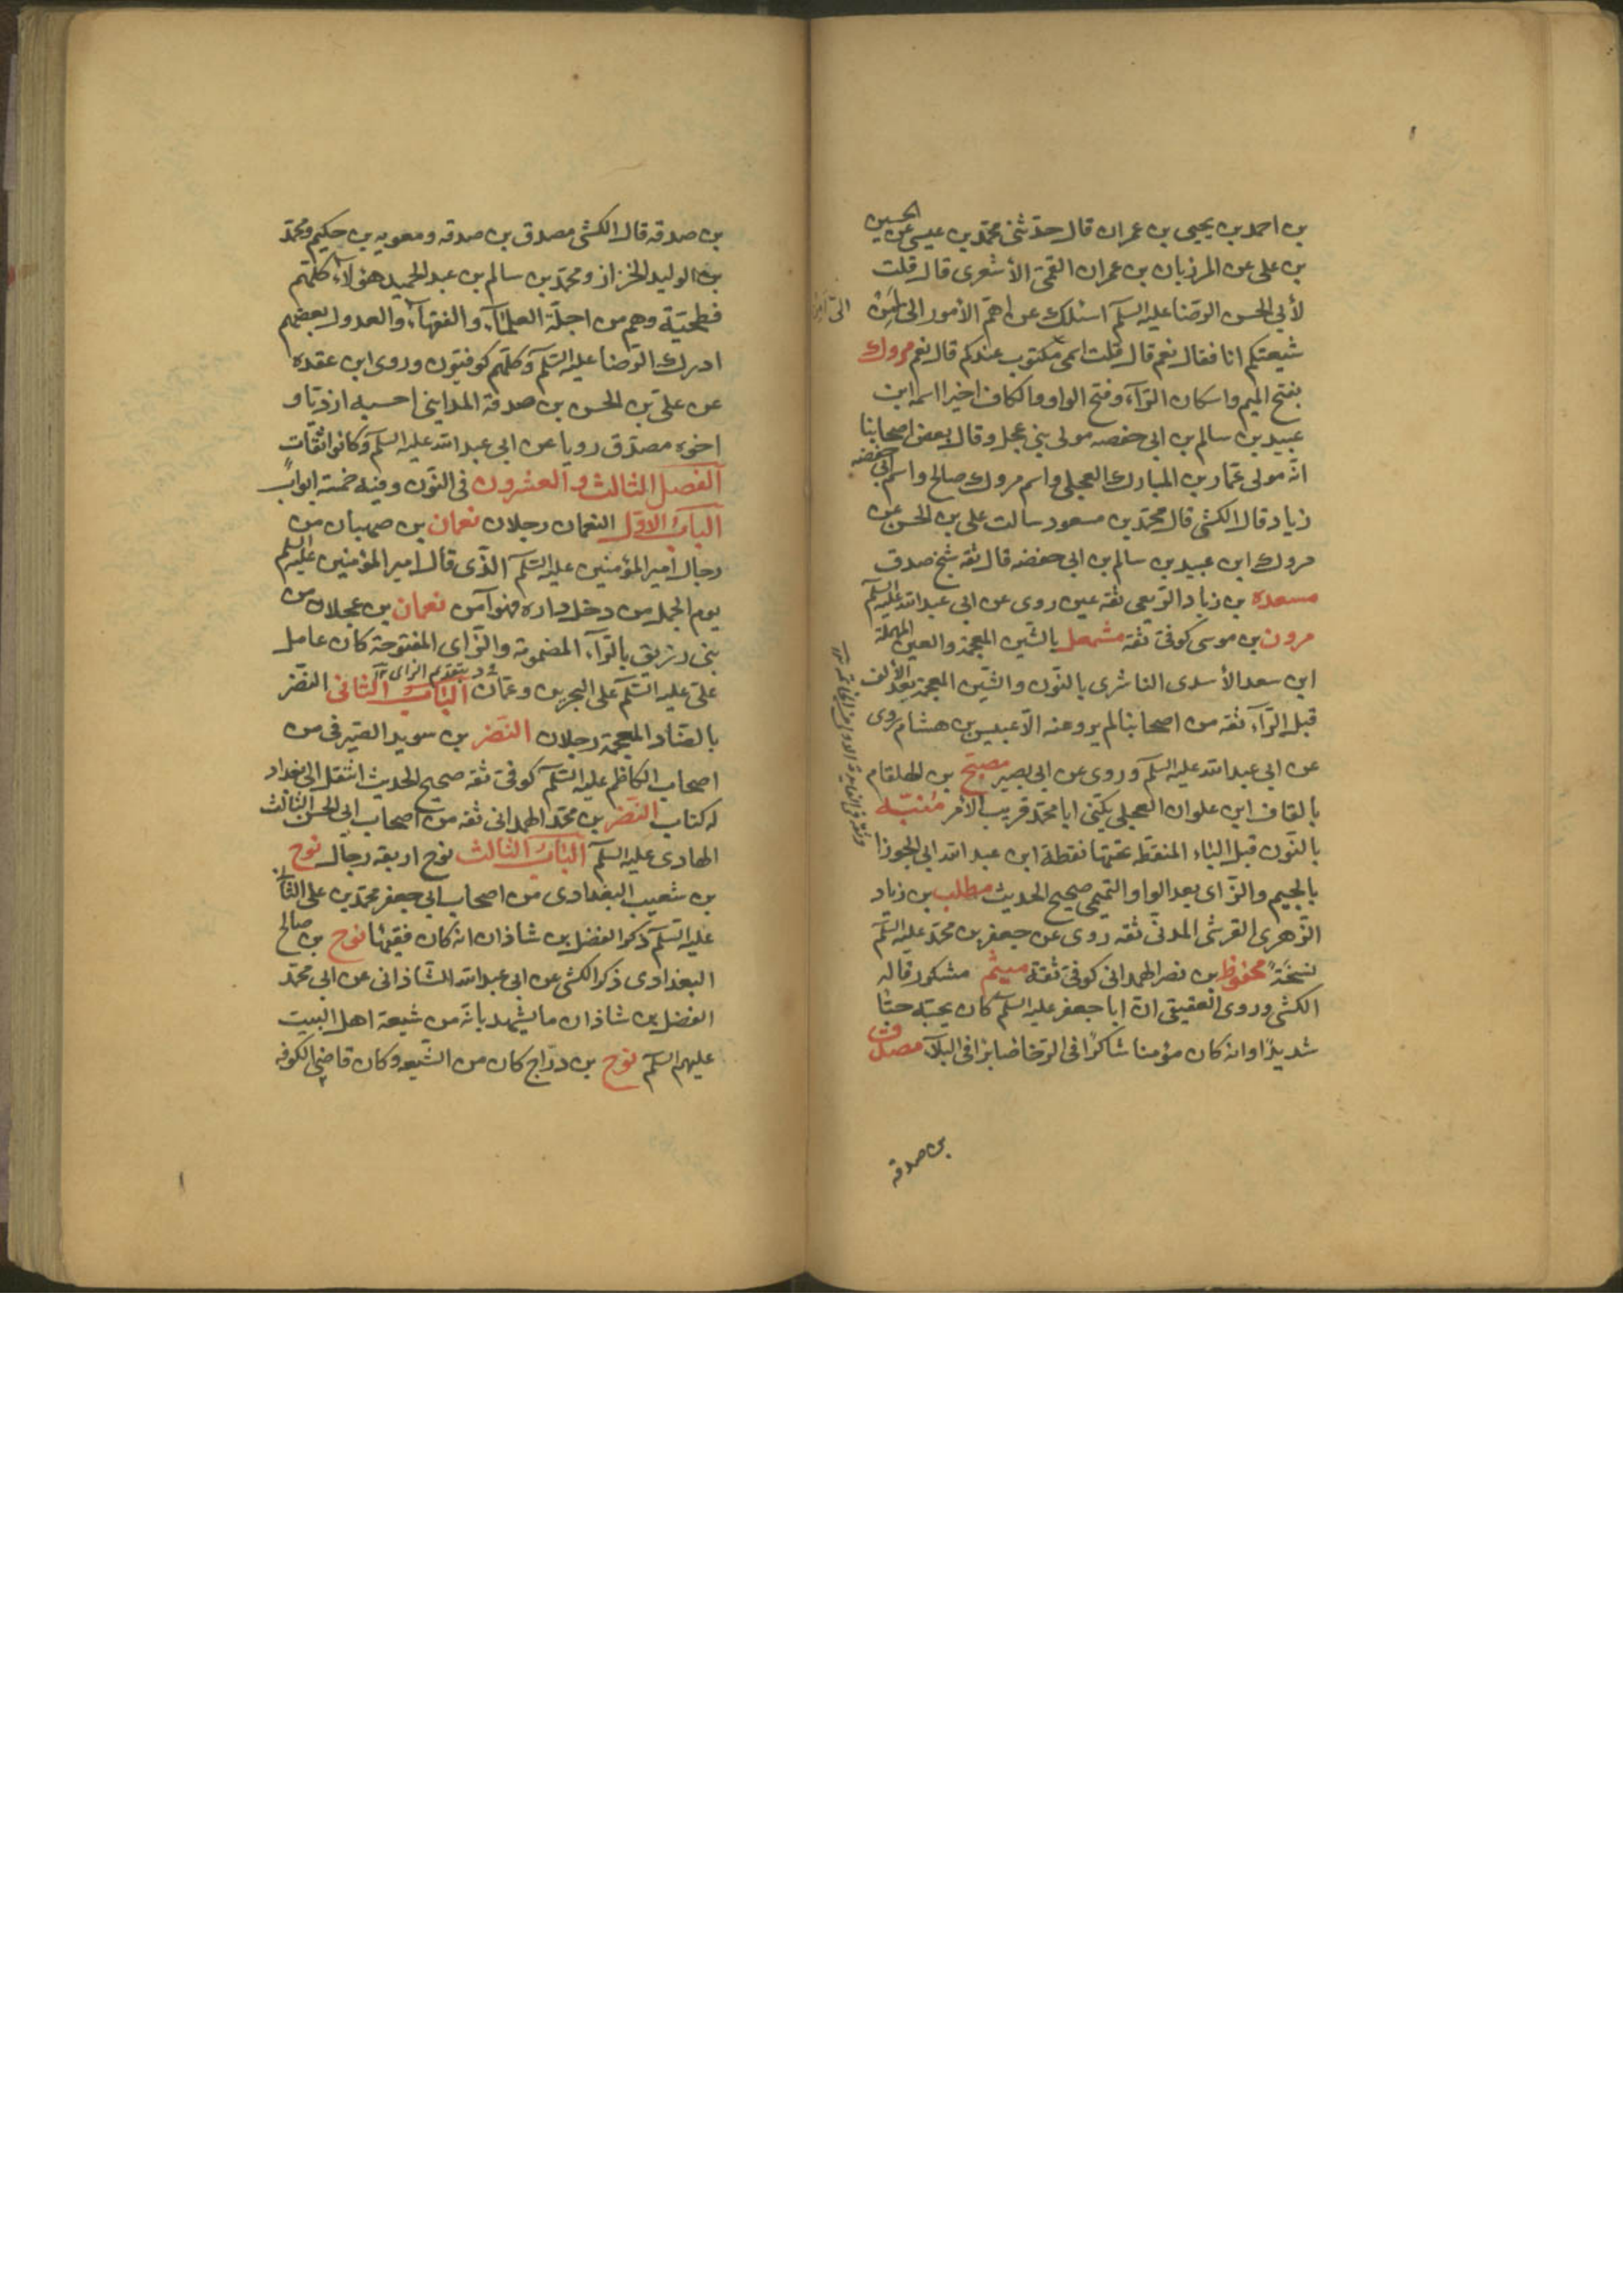 بن احمد بن يحيى بن عمران قال حدثنى محمد بن عيسى عن الحسين
بن على عن المرزبان بن عمران القمى الأشعرى قال قلت
لأبى الحسن الرضا عليه السلم اسئلك عن اهم الأمور الى امن
شيعتكم انا فقال نعم قال قلت اسمى مكتوب عندكم قال نعم مروك
بفتح الميم واسكان الرآء وفتح الواو والكاف اخيرا اسمه ابن
عبيد بن سالم بن ابى حفصه مولى بنى عجل وقال بعض اصحابنا
انه مولى عمار بن المبارك العجلى واسم مروك صالح واسم ابى حفضه
زياد قال الكشى قال محمد بن مسعود سالت على بن الحسن عن
مروك ابن عبيد بن سالم بن ابى حفضه قال ثقه شيخ صدوق
مسعده بن زياد الربعى ثقه عين روى عن ابى عبد الله عليه السلم
مرون بن موسى كوفى ثقه مشمعل بالشين المعجمة والعين المهملة
ابن سعد الأسدى الناشرى بالنون والشين المعجمة بعد الألف
قبل الرآء ثقه من اصحابنا لم يرو عنه الا عبيس بن هشام روى
عن ابى عبد الله عليه السلم وروى عن ابى بصير مصبح بن الهلقام
بالقاف ابن علوان العجلى يكنى ابا محمد قريب الأمر منبه
بالنون قبل الباء المنقطه تحتها نقطة ابن عبد الله ابى الجوزا
بالجيم والزاى بعد الواو التميمى صحيح الحديث مطلب بن زياد
الزهرى القرشى المدنى ثقه روى عن جعفر بن محمد عليه السلم
نسخة محفوظ بن نصر الهمدانى كوفى ثقة ميثم مشكور قاله
الكشى وروى العقيقى ان ابا جعفر عليه السلم كان يحبه حبا
شديدا وانه كان مؤمنا شاكرا فى الرخا صابرا فى البلآ مصدق
بن صدقه
بن صدقه قال الكشى مصدق بن صدقه ومعويه بن حكيم ومحمد
بن الوليد الخزاز ومحمد بن سالم بن عبد الحميد هؤلآء كلهم
فطحية وهم من اجلة العلمآء والفقهآء والعدول بعضهم
ادرك الرضا عليه السلم وكلهم كوفيون وروى ابن عقده
عن على بن الحسن بن صدقة المداينى احسبه ازديا و
اخوه مصدق رويا عن ابى عبد الله عليه السلم وكانوا ثقات
الفصل الثالث والعشرون فى النون وفيه خمسة ابواب
الباب الاول النعمان رجلان نعمان بن صهبان من
رجال امير المؤمنين عليه السلم الذى قال امير المؤمنين عليه السلم
يوم الجمل من دخل داره فهو آمن نعمان بن عجلان من
بنى رزيق بالرآء المضمومة والزاى المفتوحة كان عامل
على عليه السلم على البحرين وعمان الباب الثانى النضر
بالضاد المعجمة رجلان النضر بن سويد الصيرفى من
اصحاب الكاظم عليه السلم كوفى ثقه صحيح الحديث انتقل الى بغداد
له كتاب النضر بن محمد الهمدانى ثقه من اصحاب ابى الحسن الثالث
الهادى عليه السلم الباب الثالث نوح اربعه رجال نوح
بن شعيب البغدادى من اصحاب ابى جعفر محمد بن على الثانى
عليه السلم ذكر الفضل بن شاذان انه كان فقيها نوح بن صالح
البغدادى ذكر الكشى عن ابى عبد الله الشاذانى عن ابى محمد
الفضل بن شاذان ما يشهد بانه من شيعة اهل البيت
عليهم السلم نوح بن دراج كان من الشيعه وكان قاضى الكوفه